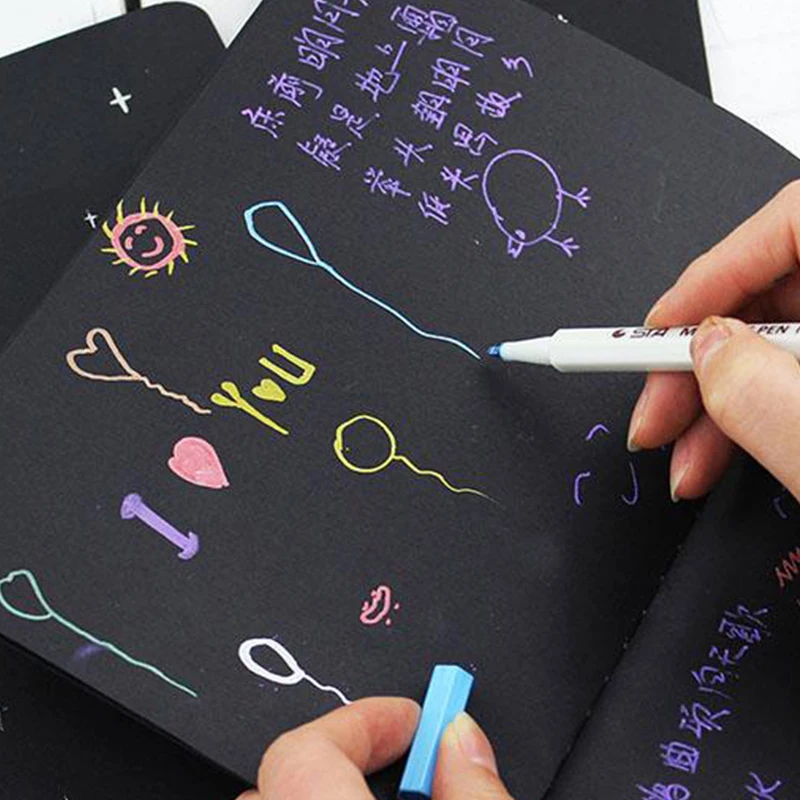 床前明月
疑是地上霜
举头望明月
低头思故乡
I ♥ YOU
STA
PEN
曲项向天歌